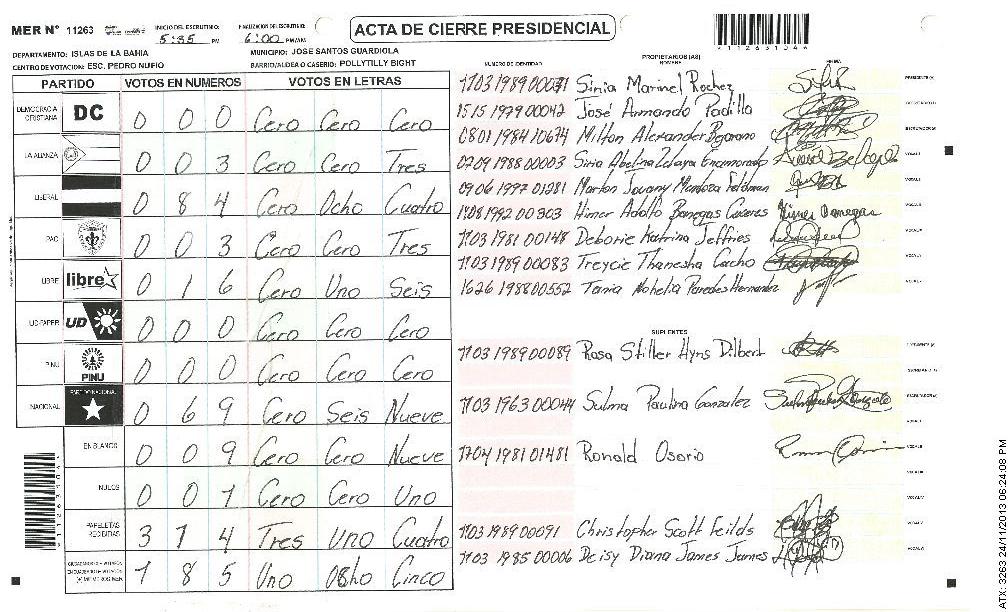 MER Nº 11263 INICIO DEL ESCRUTINIO: 5:35 PM FINALIZACION DEL ESCRUTINIO: 6:00 PM/AM ACTA DE CIERRE PRESIDENCIAL
DEPARTAMENTO: ISLAS DE LA BAHIA MUNICIPIO: JOSE SANTOS GUARDIOLA
CENTRO DE VOTACION: ESC. PEDRO NUFIO BARRIO/ALDEA O CASERIO: POLLYTILLY BIGHT
PARTIDO VOTOS EN NUMEROS VOTOS EN LETRAS
DEMOCRACIA CRISTIANA DC 0 0 0 Cero Cero Cero
LA ALIANZA 0 0 3 Cero Cero Tres
LIBERAL 0 8 4 Cero Ocho Cuatro
PAC 0 0 3 Cero Cero Tres
LIBRE libre 0 1 6 Cero Uno Seis
UD-FAPER UD 0 0 0 Cero Cero Cero
PINU PINU 0 0 0 Cero Cero Cero
NACIONAL PARTIDO NACIONAL 0 6 9 Cero Seis Nueve
EN BLANCO 0 0 9 Cero Cero Nueve
NULOS 0 0 1 Cero Cero Uno
PAPELETAS RECIBIDAS 3 1 4 Tres Uno Cuatro
1 8 5 Uno Ocho Cinco
NUMERO DE IDENTIDAD PROPIETARIOS (AS) NOMBRE FIRMA
1103 1989 00031 Sinia Marinel Rochez
1515 1979 00042 José Armando Padilla
0801 1984 10674 Milton Alexander
0209 1988 00003 Siria Abelina Zelaya Enamorado
0906 1997 01281 Marlon Jovany Mendoza Feldman
1808 1992 00303 Himer Adolfo Banegas Caceres
1103 1981 00148 Deborie Katrina Jeffries
1103 1989 00083 Treycie Thanesha Cacho
1626 1988 00552 Tania Nohelia Paredes Hernandez
SUPLENTES
1103 1989 00089 Rosa Stiller Hyns Dilbert
1103 1963 00044 Sulma Paulina Gonzalez
1704 1981 01481 Ronald Osorio
1103 1989 00091 Christopher Scott Feilds
1103 1985 00006 Deisy Diana James James
ATX: 3263 24/11/2013 06:24:08 PM